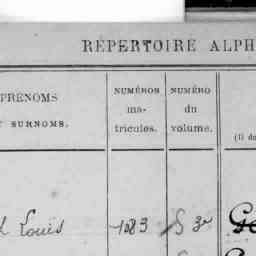 RÉPERTOIRE ALPH
PRÉNOMS
T SURNOMS.
NUMÉROS
ma-
tricules.
NUMÉRO
du
volume.
(Il de
Louis 1083 3e Ge